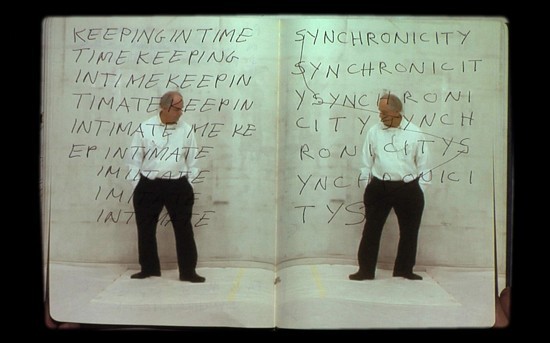 KEEPING IN TIME
TIME KEEPING
INTIME KEEPIN
TIMATE KEEPIN
INTIMATE ME KE
EP INTYMATE
IMINTATE
SYNCHRONICITY
SYNCHRONICIT
YSYNCHRONI
CITY SYNCH
RONICITYS
YNCHRONICI
TYS